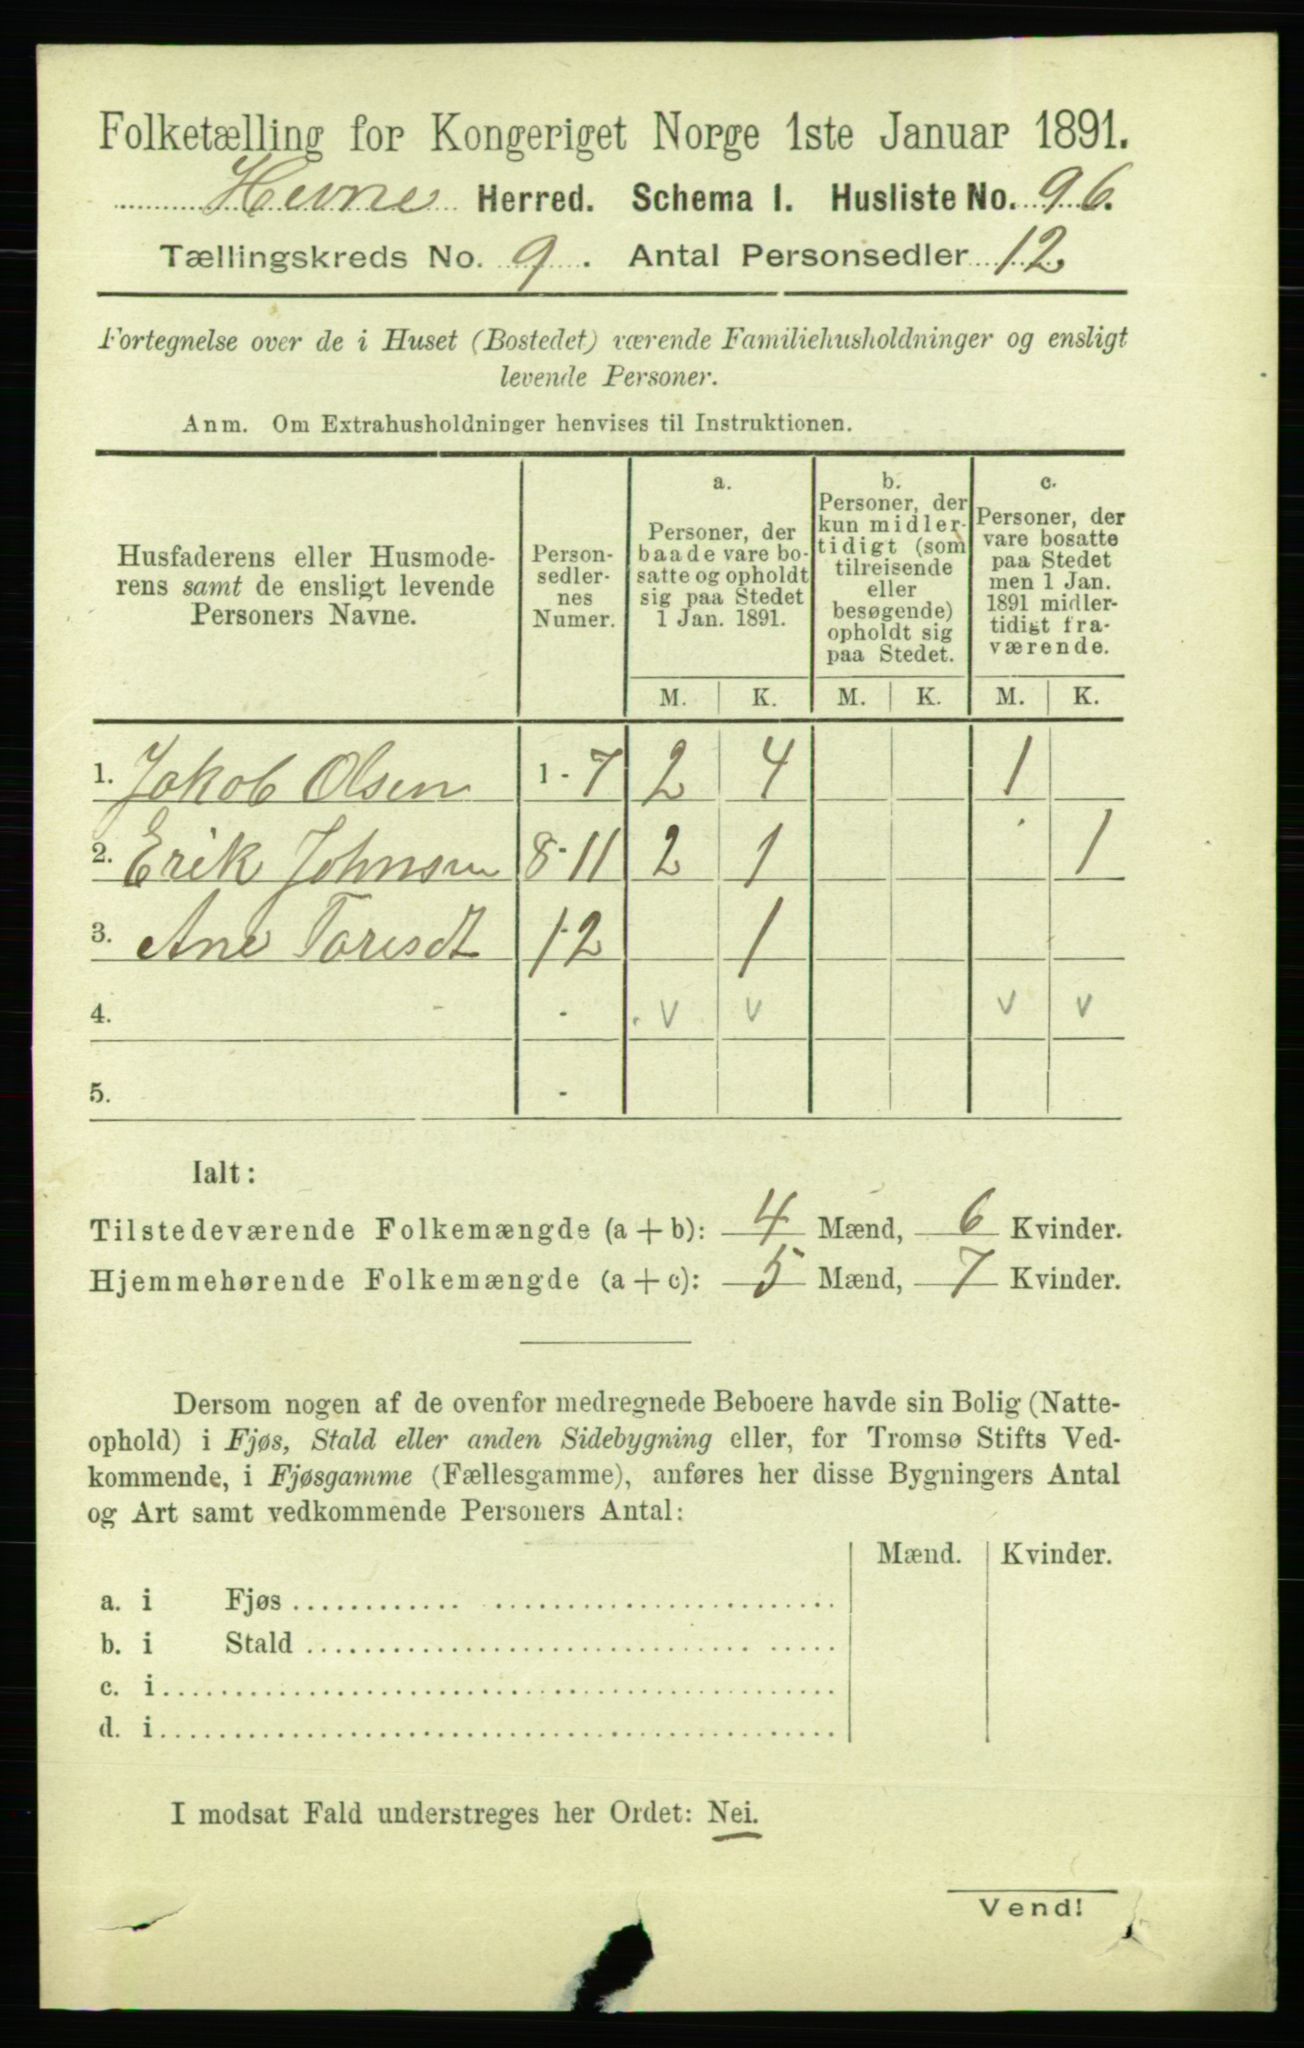 Folketælling for Kongeriget Norge 1ste Januar 1891.
Hevne Herred. Schema I. Husliste No. 96.
Tællingskreds No. 9. Antal Personsedler 12
Fortegnelse over de i Huset (Bostedet) værende Familiehusholdninger og ensligt
levende Personer.
Anm. Om Extrahusholdninger henvises til Instruktionen.
Husfaderens eller Husmode-
rens samt de ensligt levende
Personers Navne.
Person-
sedler-
nes
Numer.
a.
Personer, der
baade vare bo-
satte og opholdt
sig paa Stedet
1 Jan. 1891.
b.
Personer, der
kun midler-
tidigt (som
tilreisende
eller
besøgende)
opholdt sig
paa Stedet.
c.
Personer, der
vare bosatte
paa Stedet
men 1 Jan.
1891 midler-
tidigt fra-
værende.
M. K. M. K. M. K.
1. Jakob Olsen 1-7 2 4 1
2. Erik Johnsen 8-11 2 1 1
3. Ane Torisdt 12 1
4. - v v v v
5. -
Ialt:
Tilstedeværende Folkemængde (a + b): 4 Mænd, 6 Kvinder.
Hjemmehørende Folkemængde (a + c): 5 Mænd, 7 Kvinder.
Dersom nogen af de ovenfor medregnede Beboere havde sin Bolig (Natte-
ophold) i Fjøs, Stald eller anden Sidebygning eller, for Tromsø Stifts Ved-
kommende, i Fjøsgamme (Fællesgamme), anføres her disse Bygningers Antal
og Art samt vedkommende Personers Antal:
Mænd. Kvinder.
a. i Fjøs
b. i Stald
c. i
d. i
I modsat Fald understreges her Ordet: Nei.
Vend!